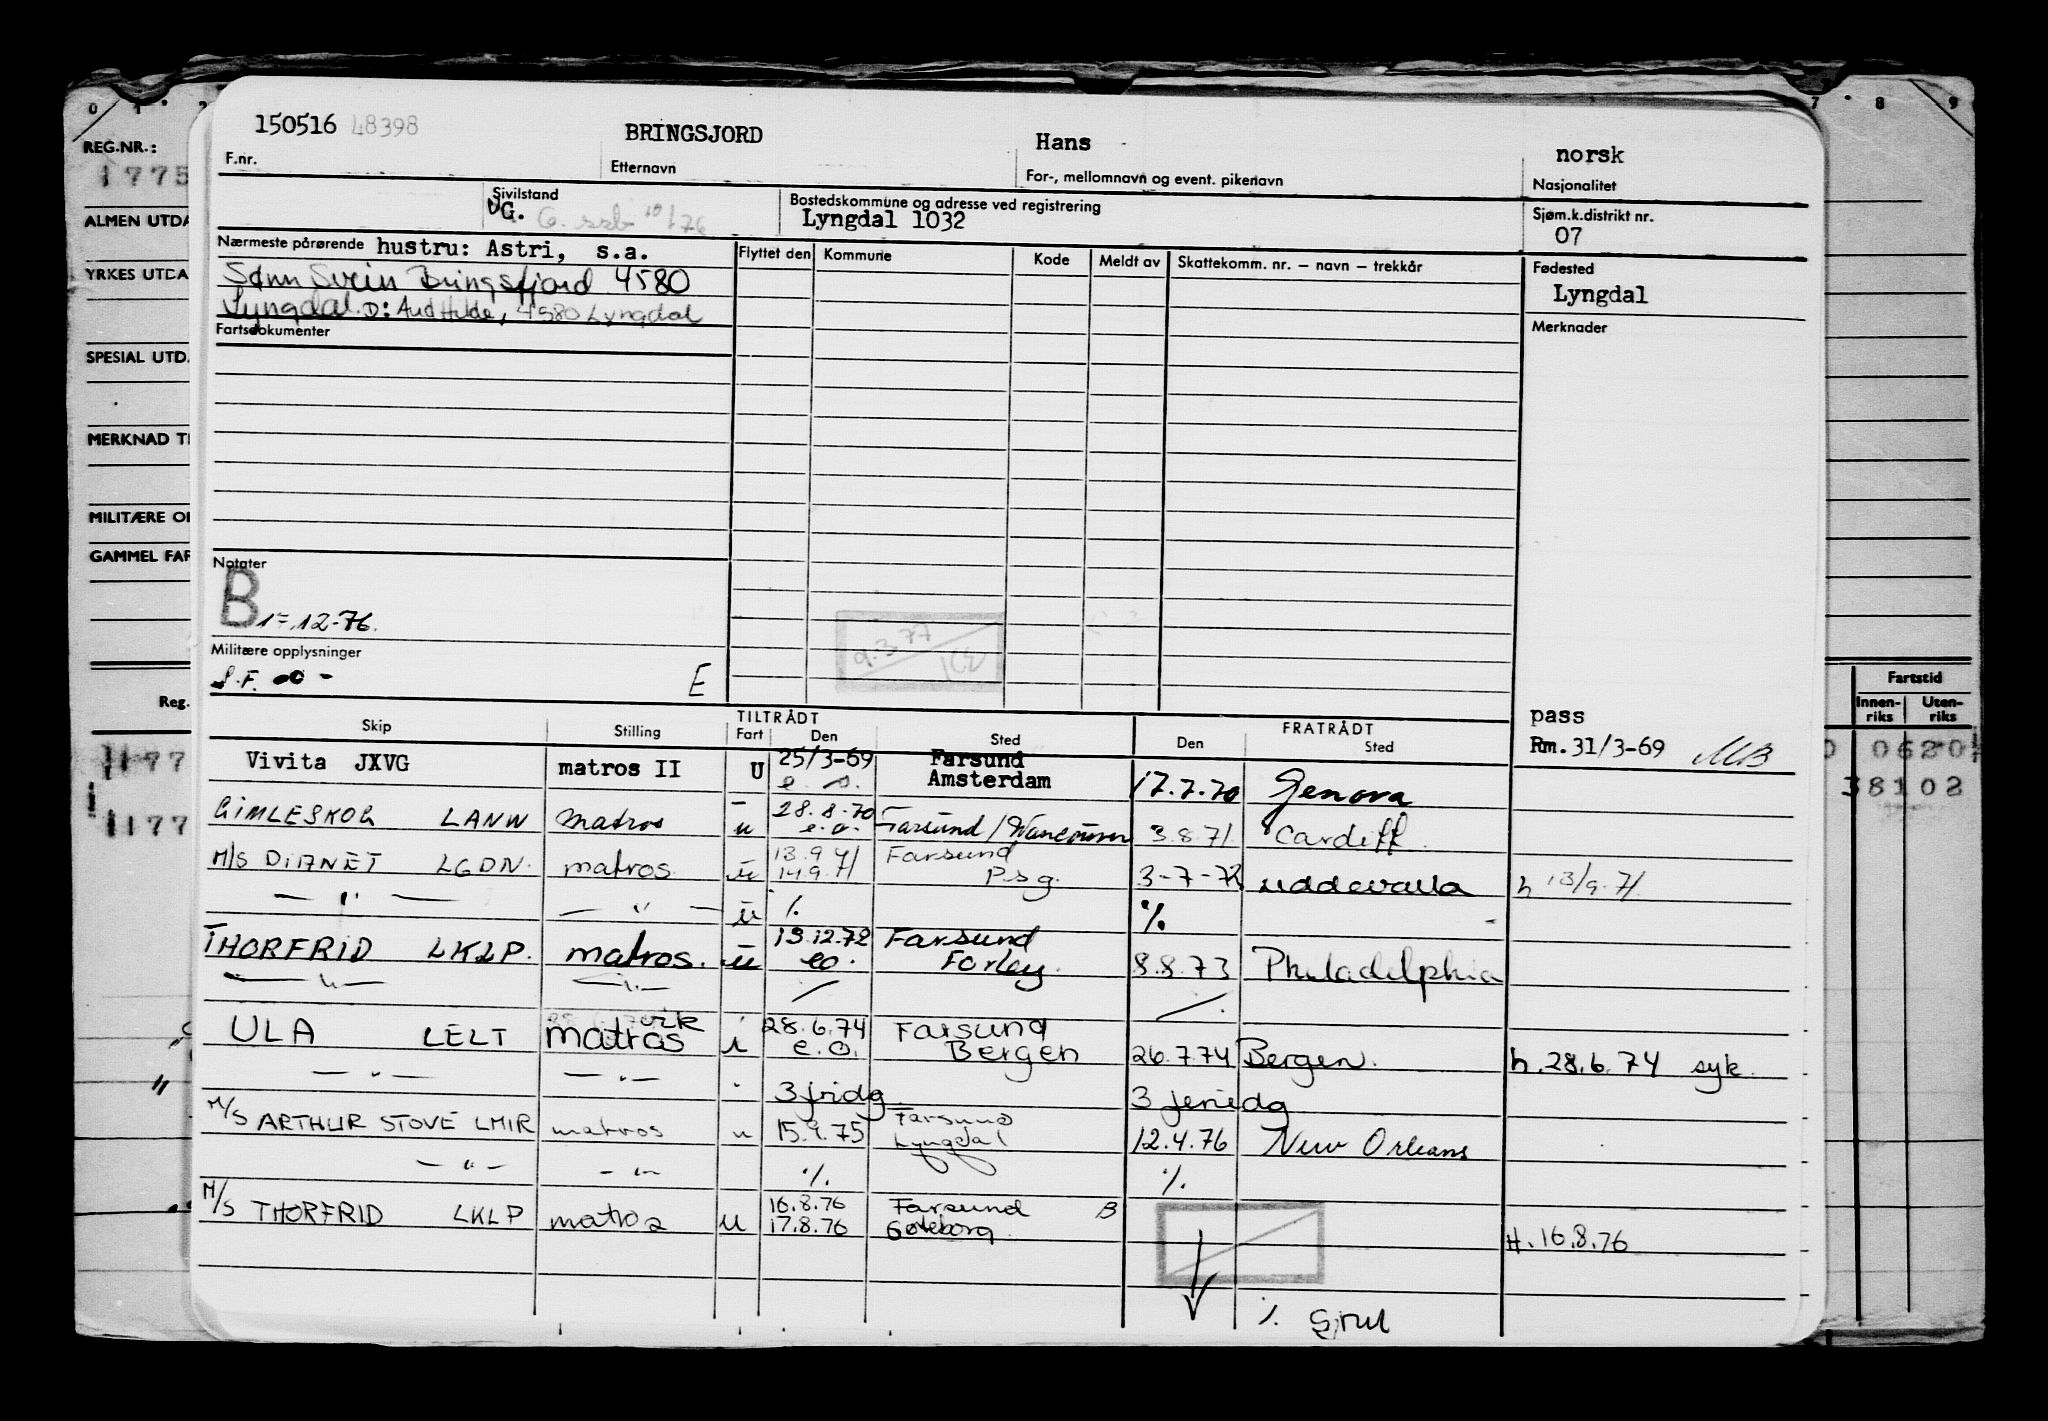 0 1 2 7 8 9
REG.NR.:
1775
ALMEN UTDA
YRKES UTDA
SPESIAL UTD.
MERKNAD TI
MILITÆRE OP
GAMMEL FAR
Reg.
1177
1177
150516 48398 BRINGSJORD Hans norsk
F.nr. Etternavn For-, mellomnavn og event. pikenavn Nasjonalitet
Sivilstand Bostedskommune og adresse ved registrering Sjøm.k.distrikt nr.
G. Lyngdal 1032 07
Nærmeste pårørende hustru: Astri, s.a. Flyttet den Kommune Kode Meldt av Skattekomm. nr. – navn – trekkår Fødested
Sønn Svein Bringsfjord 4580 Lyngdal
Lyngdal. D: Aud Hilde, 4580 Lyngdal
Fartsdokumenter Merknader
Notater
B 17.12-76.
9.3.77
Militære opplysninger
S.F. E
TILTRÅDT FRATRÅDT pass
Skip Stilling Fart Den Sted Den Sted Rm. 31/3-69 MB
Vivita JXVG matros II U 25/3-69 Farsund
e.o. Amsterdam 17.7.70 Genova
GIMLESKOG LANW matros u 28.8.70 e.o. Farsund/Vancouver 3.8.71. Cardiff.
M/S DIANET LGDN. matros u 13.9.71 Farsund
14.9.71 Psg. 3-7-72 uddevalla h 13/9.71.
— " — — " — u ⁒ ⁒
THORFRID LKLP. matros. u 13.12.72 Farsund
eo. Forley. 8.8.73 Philadelphia
— " — — " — / /
ULA LELT matros 28.6.74 Farsund
e.o. Bergen 26.7.74 Bergen. h. 28.6.74 syk.
— " — — " — 3 fridg. 3 feriedg
M/S ARTHUR STOVE LMIR matros u 15.9.75 Farsund
Lyngdal 12.4.76 New Orleans
— " — — " — ⁒ ⁒
M/S THORFRID LKLP matros u 16.8.76 Farsund B
17.8.76 Gøteborg. H. 16.8.76
Fartstid
Innen-riks Uten-riks
0620
38102